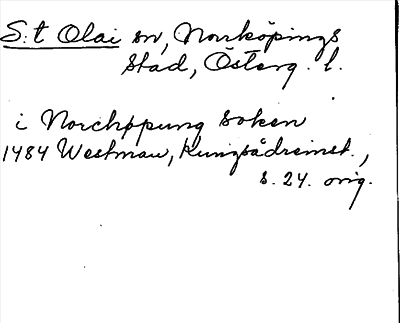 S:t Olai sn, Norrköpings
stad, Österg. l.
i Norchppung soken
1484 Westman, Kungsådreinst.,
s. 24. orig.